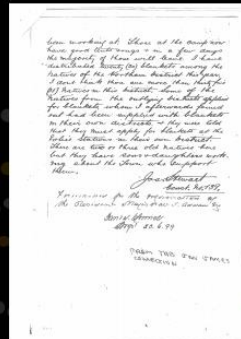 been working at. Those at the camp now
have good tents & rugs & in a few days
the majority of them will leave. I have
distributed twenty (20) blankets among the
Natives of the Northam District this year.
I don't think there are more than thirty five
(35) Natives in this District. Some of the
Natives from the outlying Districts applied
for blankets whom I afterwards found
out had been supplied with blankets
in their own districts & they were told
that they must apply for blankets at the
Police Stations in their own District.
There are two or three old natives here
but they have sons & daughters work-
ing about the Town who support
them.
Jas Stewart
Const. No
Forwarded for the information of
the
Sergt 22.6.99
FROM THIS JAN JAMES
CONNECTION